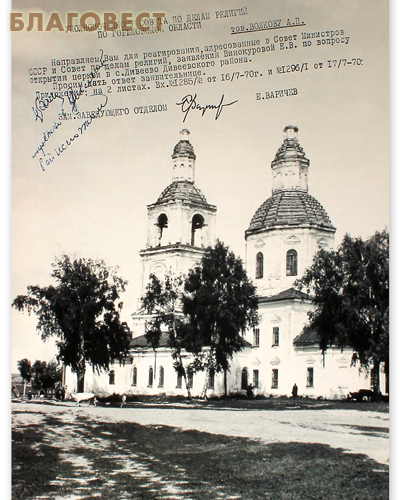 БЛАГОВЕСТ
УПОЛНОМОЧЕННОМУ СОВЕТА ПО ДЕЛАМ РЕЛИГИЙ
ПО ГОРЬКОВСКОЙ ОБЛАСТИ тов.ВОЛКОВУ А.П.
Направляем Вам для реагирования, адресованные в Совет Министров
СССР и Совет по делам религий, заявления Винокуровой Е.В. по вопросу
открытия церкви в с.Дивеево Дивеевского района.
Просим дать ответ заявительнице.
Приложение: на 2 листах. Вх.№1285/№ от 16/7-70г. и №1296/1 от 17/7-70г.
ЗАМ.ЗАВЕДУЮЩЕГО ОТДЕЛОМ Е.ВАРИЧЕВ